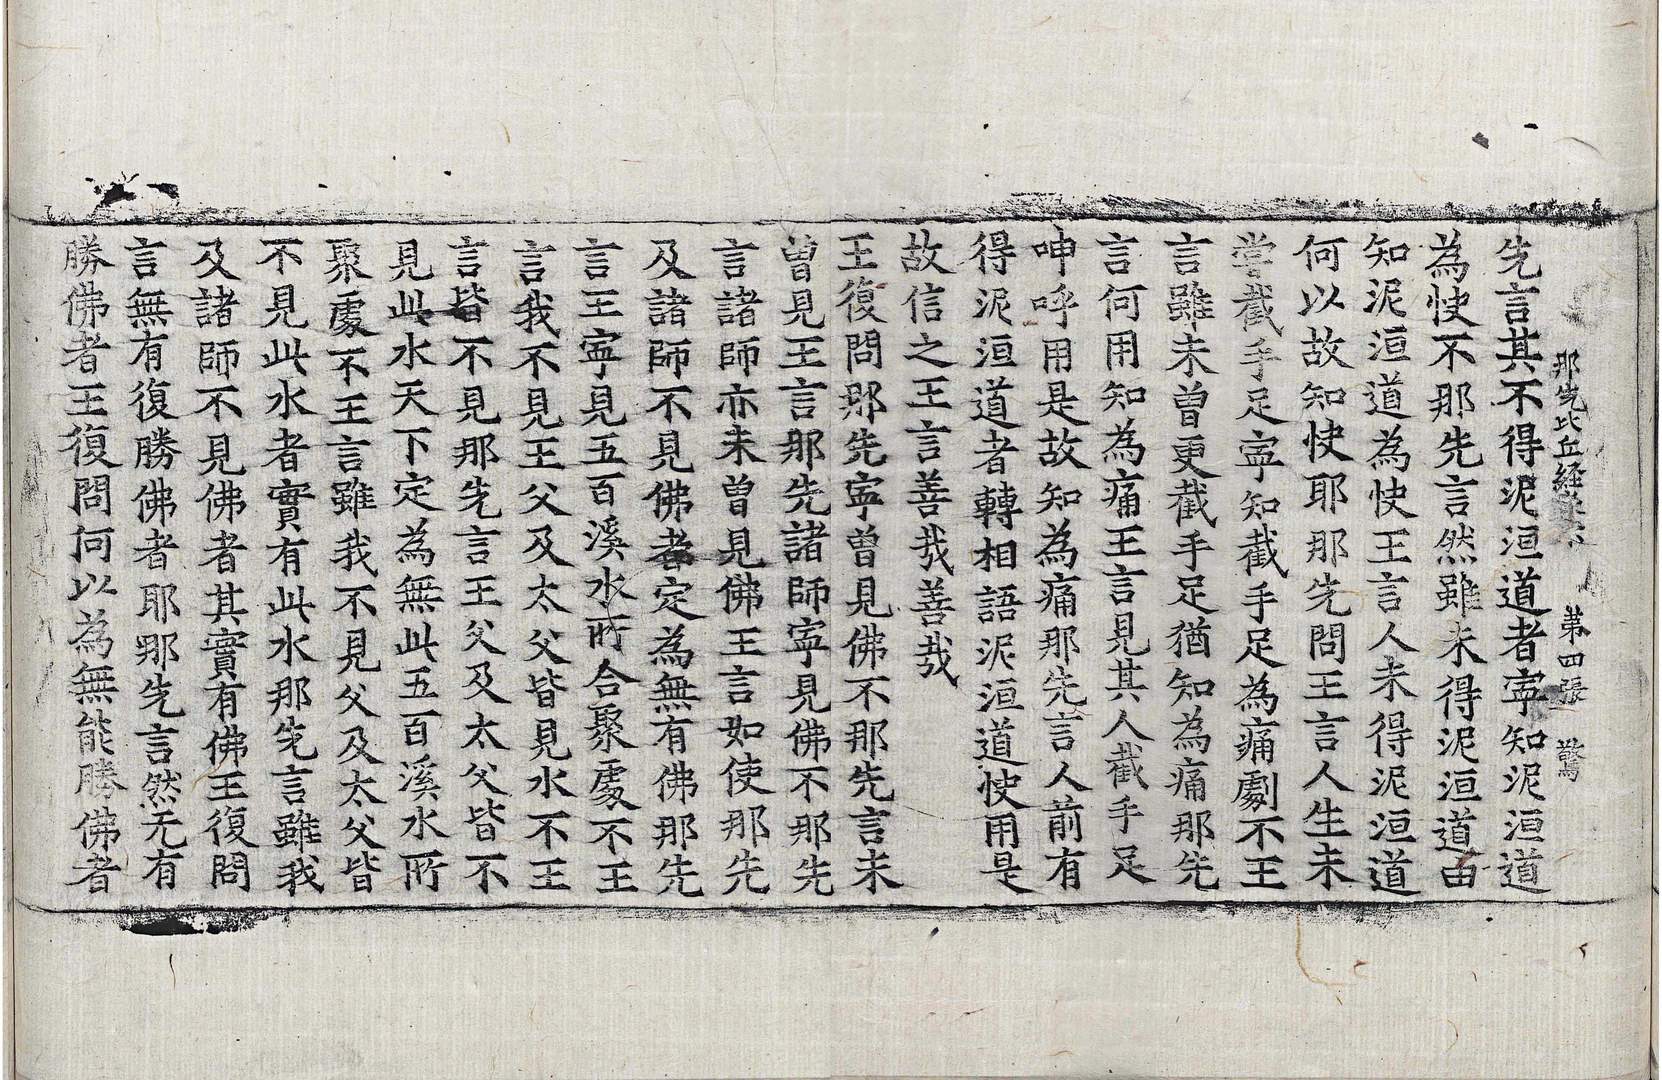 那先比丘経 第四張 驚
先言其不得泥洹道者寧知泥洹道
為快不那先言然雖未得泥洹道由
知泥洹道為快王言人未得泥洹道
何以故知快耶那先問王言人生未
甞截手足寧知截手足為痛劇不王
言雖未曽更截手足猶知為痛那先
言何用知為痛王言見其人截手足
呻呼用是故知為痛那先言人前有
得泥洹道者轉相語泥洹道快用是
故信之王言善哉善哉
王復問那先寧曽見佛不那先言未
曽見王言那先諸師寧見佛不那先
言諸師亦未曽見佛王言如使那先
及諸師不見佛者定為無有佛那先
言王寧見五百溪水所合聚處不王
言我不見王父及太父皆見水不王
言皆不見那先言王父及太父皆不
見此水天下定為無此五百溪水所
聚處不王言雖我不見父及太父皆
不見此水者實有此水那先言雖我
及諸師不見佛者其實有佛王復問
言無有復勝佛者耶那先言然无有
勝佛者王復問何以為無能勝佛者